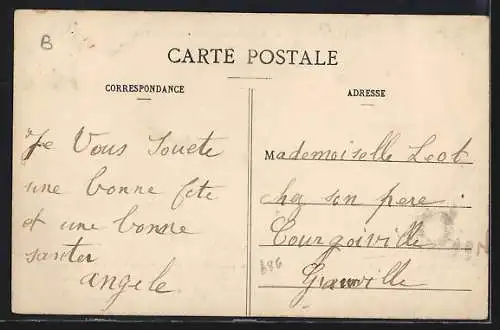 B
CARTE POSTALE
CORRESPONDANCE
ADRESSE
Je Vous Souete
une bonne fete
et une bonne
santer
angele
Mademoiselle Leot
chez son pere
Tourgoiville
Granville
686